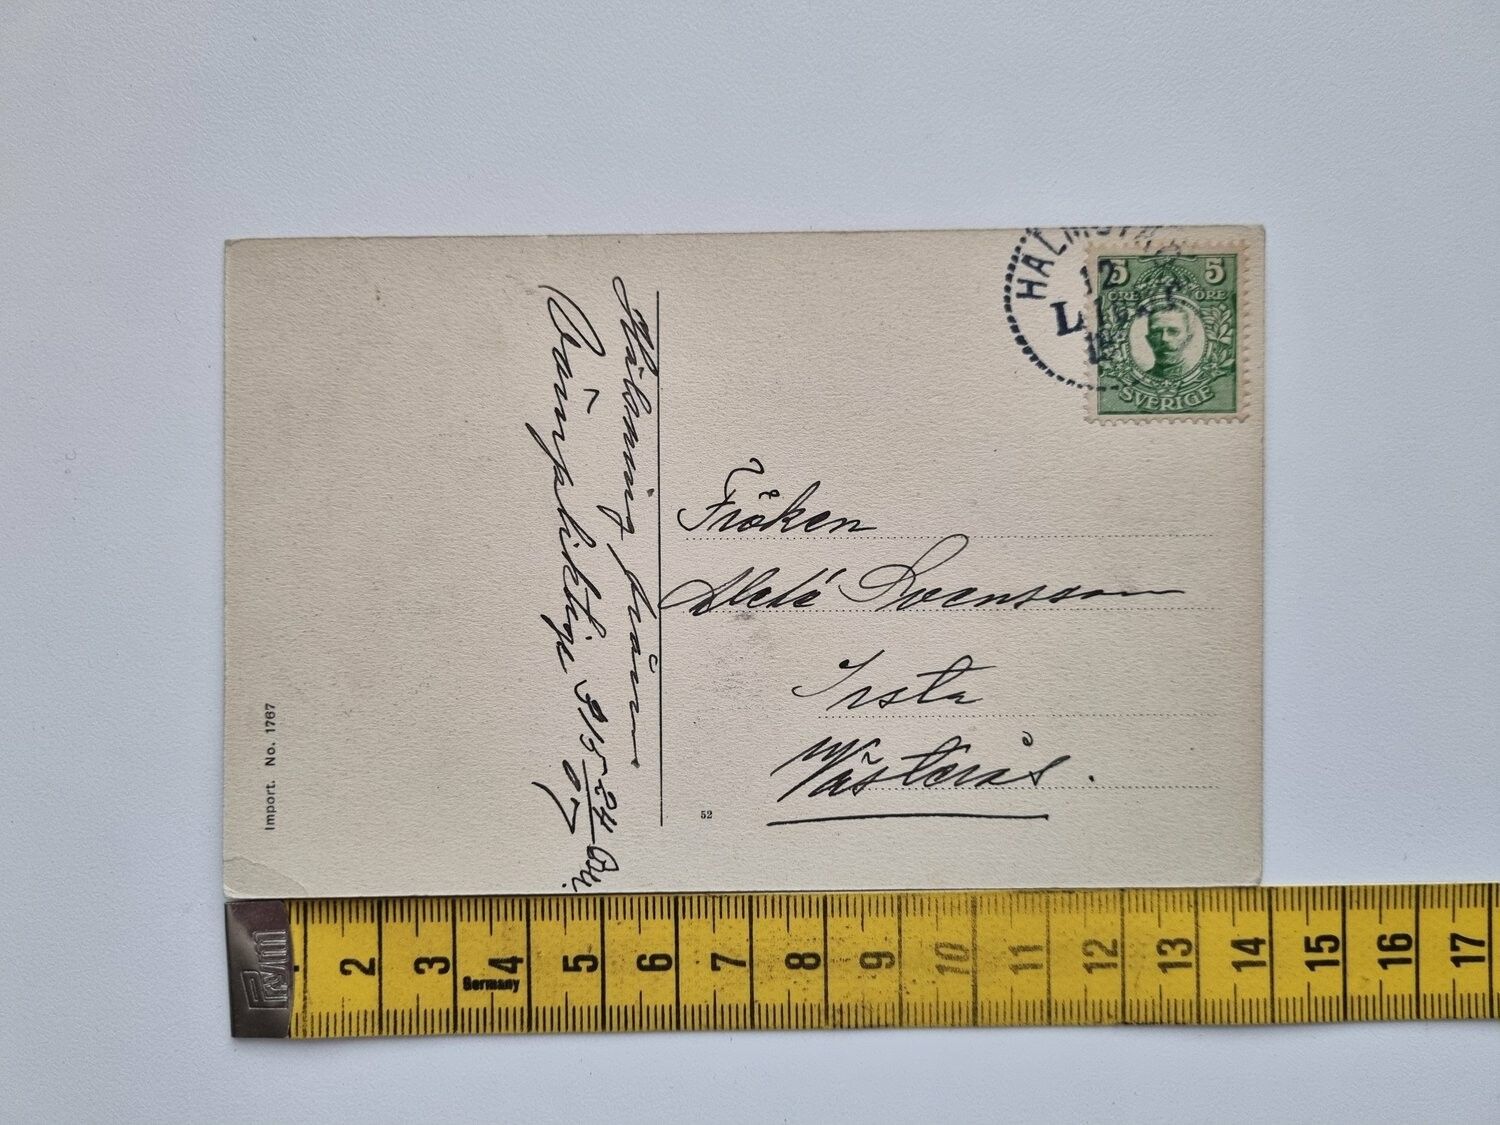 HALMSTAD
12
L
5 5
ÖRE ÖRE
SVERIGE
Fröken
Svensson
Irsta
Västerås.
Hälsning från
Värnpliktige 315 24/07
52
Import. No. 1767
Germany
2 3 4 5 6 7 8 9 10 11 12 13 14 15 16 17